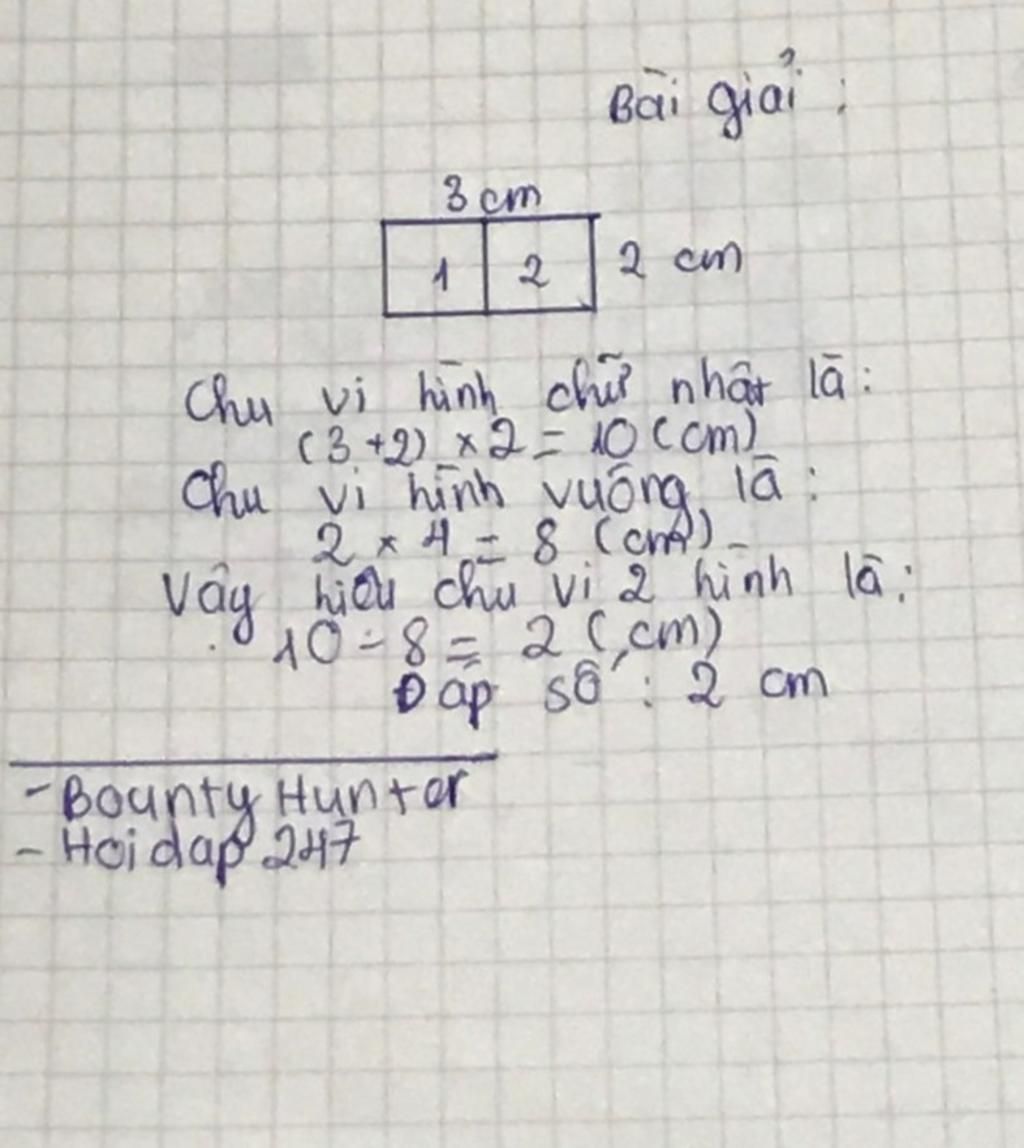 Bài giải :
3 cm
1 2 2 cm
Chu vi hình chữ nhật là :
(3 +2) × 2 = 10 (cm)
Chu vi hình vuông là :
2 × 4 = 8 (cm)
Vậy hiệu chu vi 2 hình là :
10 - 8 = 2 (cm)
Đáp số : 2 cm
- Bounty Hunter
- Hoidap 247